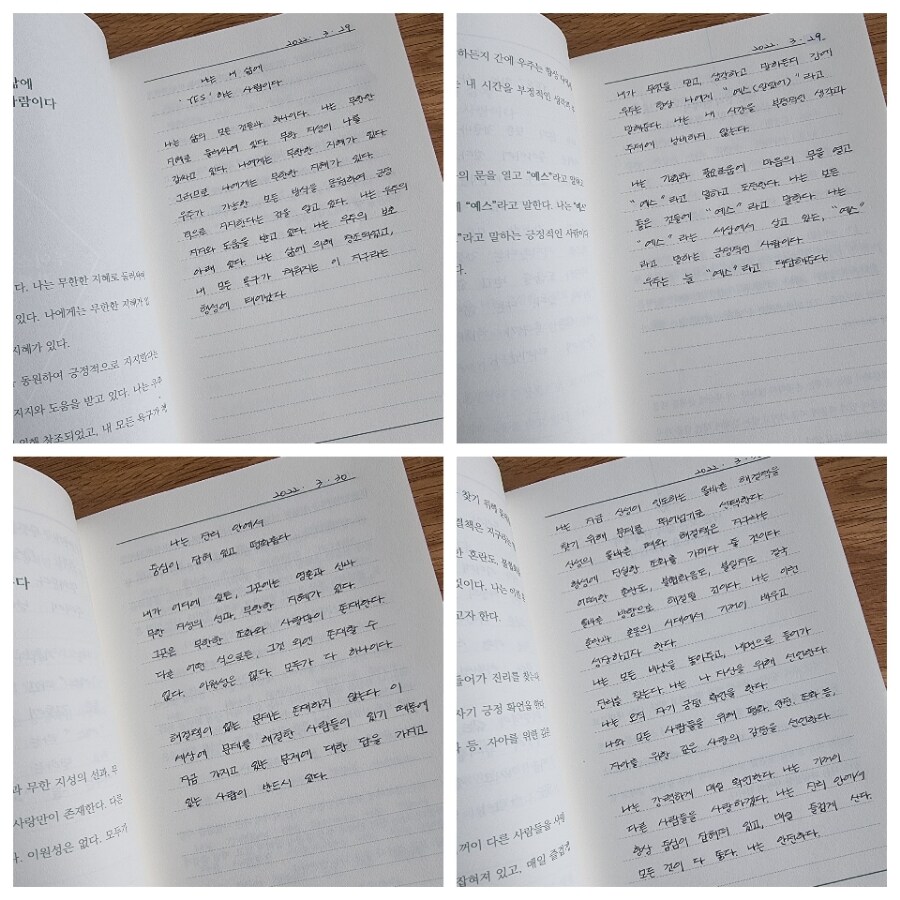 2022. 3. 29
나는 내 삶에
'YES' 하는 사람이다.
나는 삶의 모든 것들과 하나이다. 나는 무한한
지혜로 둘러싸여 있다. 무한 지성이 나를
감싸고 있다. 나에게는 무한한 지혜가 있다.
그러므로 나에게는 무한한 지혜가 있다.
우주가 가능한 모든 방식을 동원하여 긍정
적으로 지지한다는 것을 알고 있다. 나는 우주의
지지와 도움을 받고 있다. 나는 우주의 보호
아래 있다. 나는 삶에 의해 창조되었고,
내 모든 욕구가 채워지는 이 지구라는
행성에 태어났다.
삶에
사람이다
다. 나는 무한한 지혜로 둘러싸여
있다. 나에게는 무한한 지혜가 있
지혜가 있다.
동원하여 긍정적으로 지지한다는
지지와 도움을 받고 있다. 나는 우주
의해 창조되었고, 내 모든 욕구가 채
2022. 3. 29
내가 무엇을 믿고, 생각하고 말하든지 간에
우주는 항상 나에게 "예스(알았어)"라고
말해준다. 나는 내 시간을 부정적인 생각과
주제에 낭비하지 않는다.
나는 기회와 풍요로움에 마음의 문을 열고
"예스"라고 말하고 도전한다. 나는 모든
좋은 것들에 "예스"라고 말한다. 나는
"예스"라는 세상에서 살고 있는, "예스"
라고 말하는 긍정적인 사람이다.
우주는 늘 "예스"라고 대답해준다.
하든지 간에 우주는 항상 나에게
는 내 시간을 부정적인 생각과
의 문을 열고 "예스"라고 말하고
에 "예스"라고 말한다. 나는 "예스"
"라고 말하는 긍정적인 사람이다
다.
2022. 3. 30
나는 진리 안에서
중심이 잡혀 있고 평화롭다
내가 어디에 있든, 그곳에는 영혼과 신과
무한 지성의 선과, 무한한 지혜가 있다.
그곳은 무한한 조화와 사랑만이 존재한다.
다른 어떤 식으로든, 그것 외엔 존재할 수
없다. 이원성은 없다. 모두가 다 하나이다.
해결책이 없는 문제는 존재하지 않는다. 이
세상에 문제를 해결한 사람들이 있기 때문에
지금 가지고 있는 문제에 대한 답을 가지고
있는 사람이 반드시 있다.
다
과 무한 지성의 선과, 무
사랑만이 존재한다. 다른
다. 이원성은 없다. 모두가
2022. 3.
나는 지금 신성이 인도하는 올바른 해결책을
찾기 위해 문제를 뛰어넘기로 선택한다.
신성의 올바른 때와 해결책은 지구라는
행성에 진실한 조화를 가져다 줄 것이다.
어떠한 혼란도, 불협화음도, 불일치도 결국
올바른 방향으로 해결될 것이다. 나는 이런
혼란과 혼동의 시대에서 기꺼이 배우고
성장하고자 한다.
나는 모든 비난을 놓아두고, 내면으로 들어가
진리를 찾는다. 나는 나 자신을 위해 선언한다.
나는 오직 자기 긍정 확언을 한다.
나와 모든 사람들을 위해 평화, 안전, 조화 등,
자아를 위한 깊은 사랑의 감정을 선언한다.
나는 강력하게 매일 확언한다. 나는 기꺼이
다른 사람들을 사랑하겠다. 나는 진리 안에서
항상 중심이 잡혀져 있고, 매일 즐겁게 산다.
모든 것이 다 좋다. 나는 안전하다.
찾기 위해 문
결책은 지구라는
한 혼란도, 불협화
것이다. 나는 이런
고자 한다.
들어가 진리를 찾는다
자기 긍정 확언을 한다
등, 자아를 위한 깊은
꺼이 다른 사람들을 사랑
잡혀져 있고, 매일 즐겁게